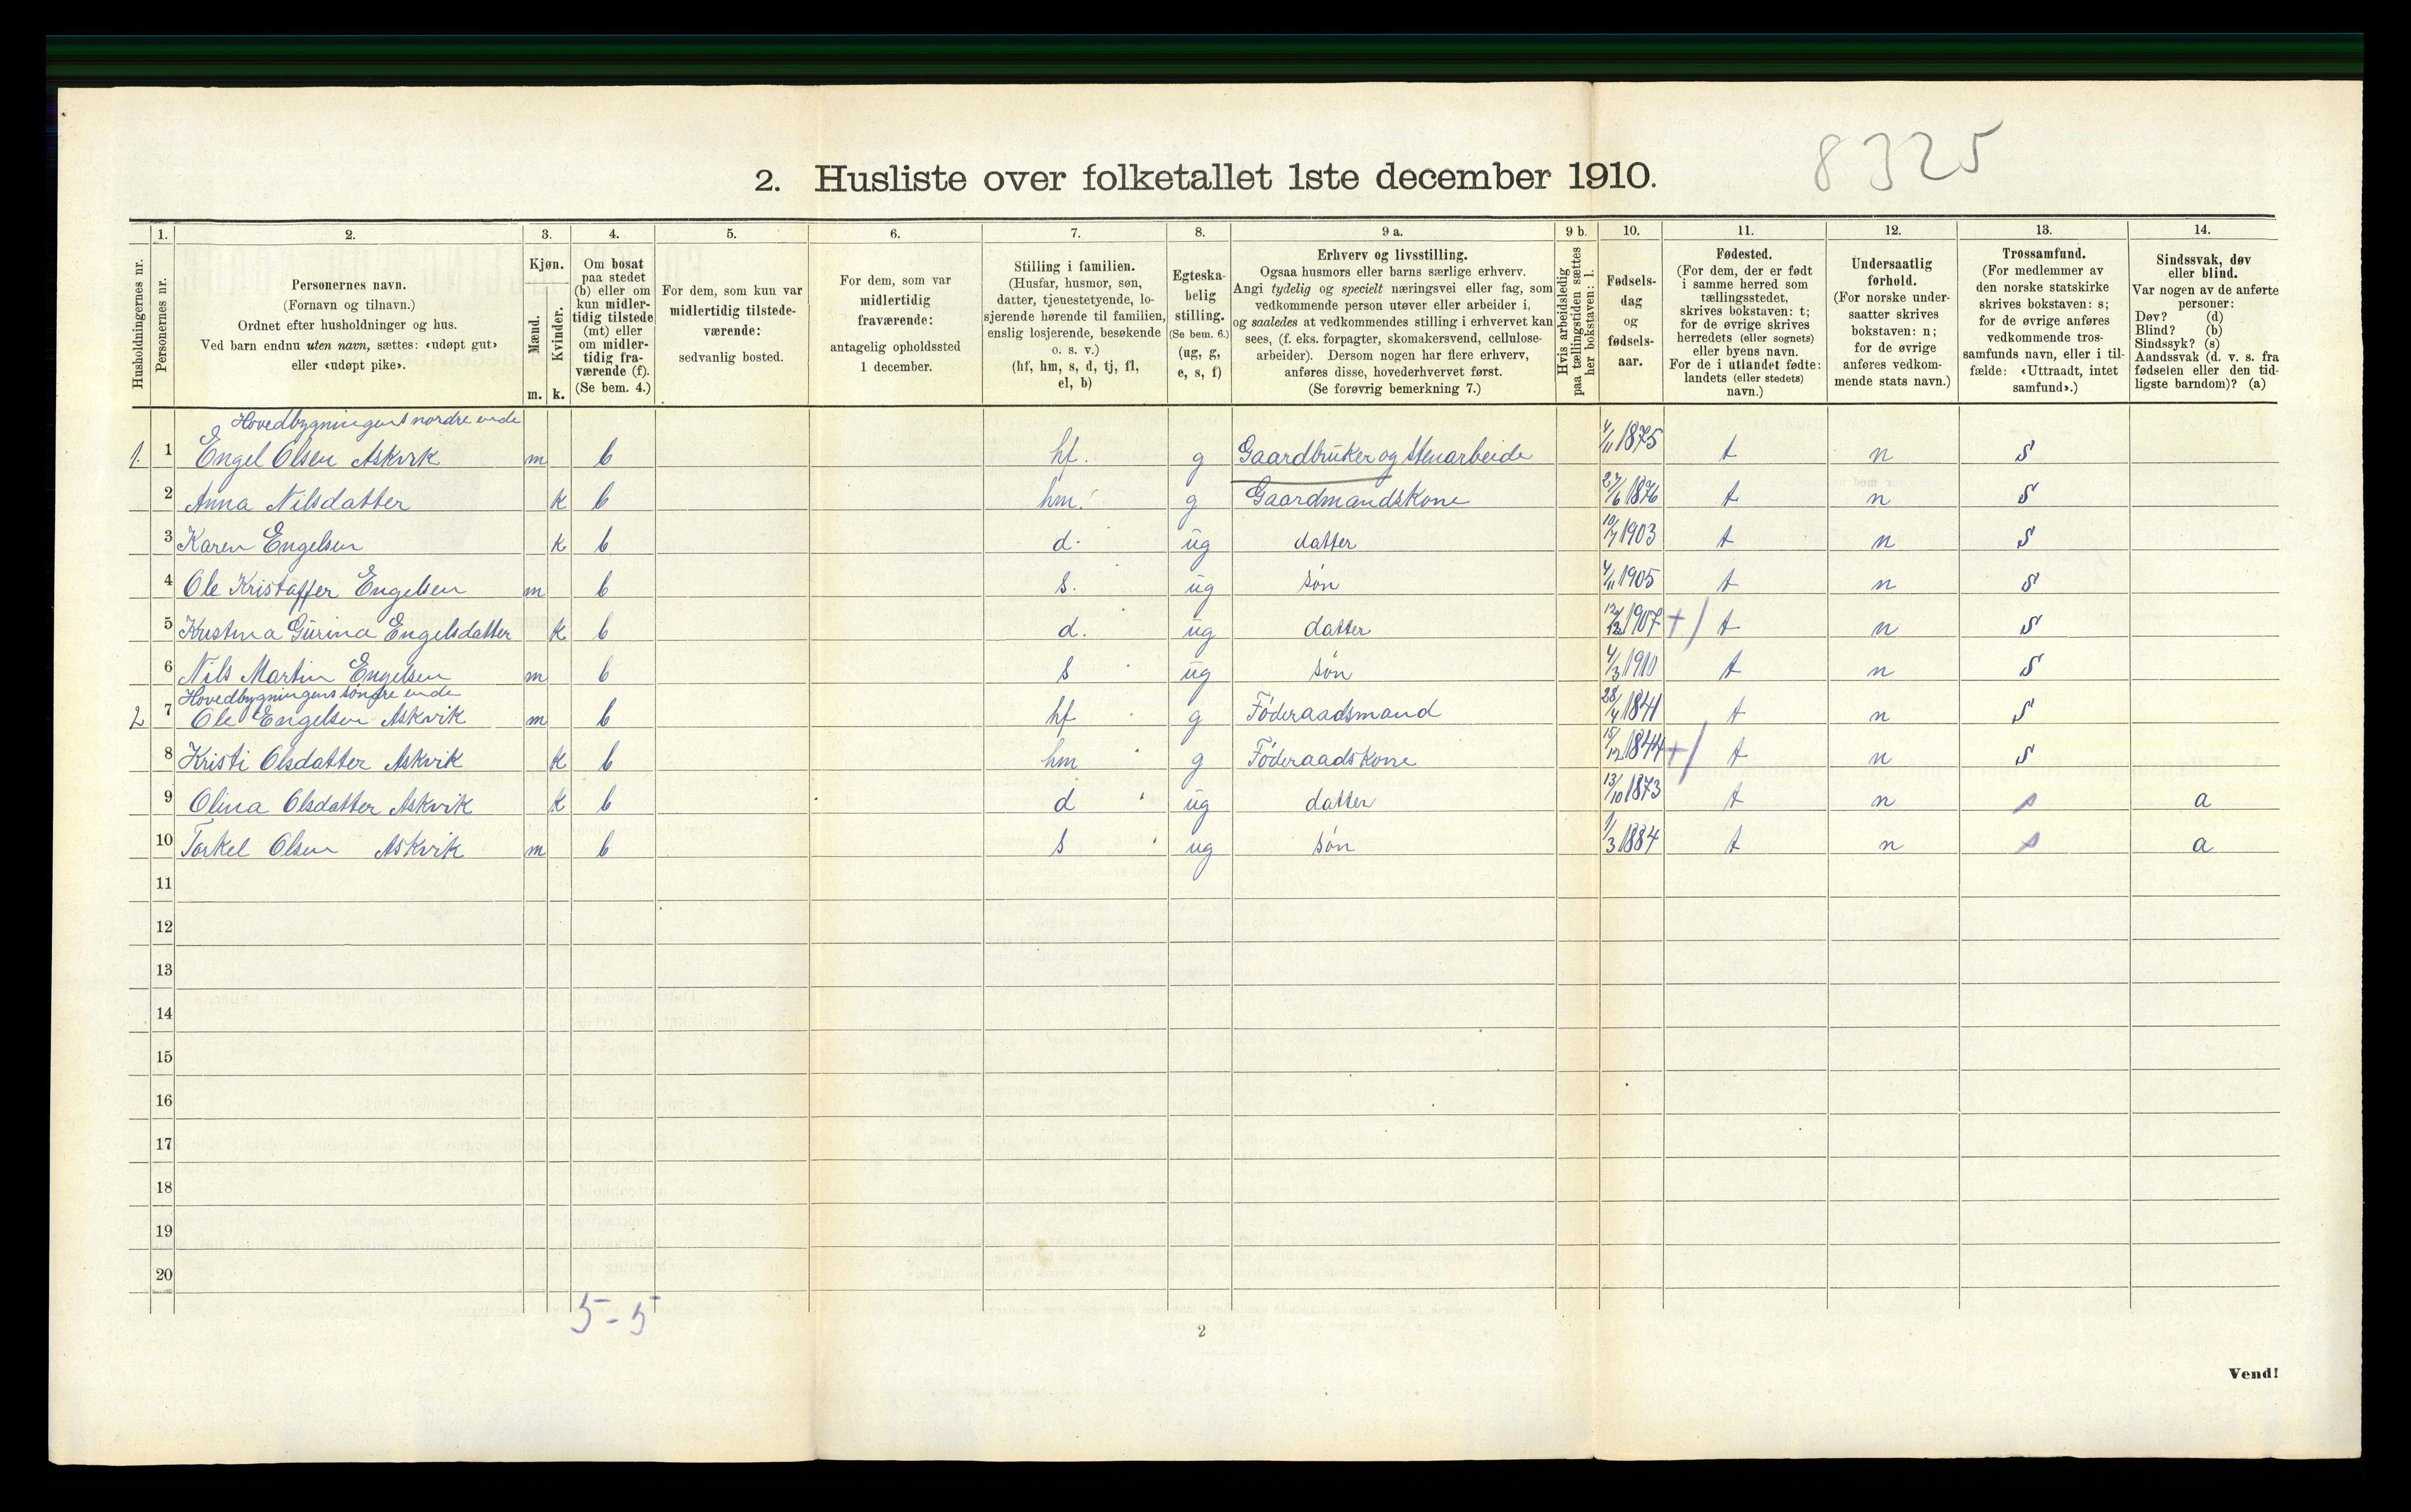 8325
2. Husliste over folketallet 1ste december 1910.
Husholdningernes nr.
1.
Personernes nr.
2.
Personernes navn.
(Fornavn og tilnavn.)
Ordnet efter husholdninger og hus.
Ved barn endnu uten navn, sættes: «udøpt gut»
eller «udøpt pike».
3.
Kjøn.
Mænd.
Kvinder.
m. k.
4.
Om bosat
paa stedet
(b) eller om
kun midler-
tidig tilstede
(mt) eller
om midler-
tidig fra-
værende (f).
(Se bem. 4.)
5.
For dem, som kun var
midlertidig tilstede-
værende:
sedvanlig bosted.
6.
For dem, som var
midlertidig
fraværende:
antagelig opholdssted
1 december.
7.
Stilling i familien.
(Husfar, husmor, søn,
datter, tjenestetyende, lo-
sjerende hørende til familien,
enslig losjerende, besøkende
o. s. v.)
(hf, hm, s, d, tj, fl,
el, b)
8.
Egteska-
belig
stilling.
(Se bem. 6.)
(ug, g,
e, s, f)
9 a.
Erhverv og livsstilling.
Ogsaa husmors eller barns særlige erhverv.
Angi tydelig og specielt næringsvei eller fag, som
vedkommende person utøver eller arbeider i,
og saaledes at vedkommendes stilling i erhvervet kan
sees, (f. eks. forpagter, skomakersvend, cellulose-
arbeider). Dersom nogen har flere erhverv,
anføres disse, hovederhvervet først.
(Se forøvrig bemerkning 7.)
9 b.
Hvis arbeidsledig
paa tællingstiden sættes
her bokstaven: l.
10.
Fødsels-
dag
og
fødsels-
aar.
11.
Fødested.
(For dem, der er født
i samme herred som
tællingsstedet,
skrives bokstaven: t;
for de øvrige skrives
herredets (eller sognets)
eller byens navn.
For de i utlandet fødte:
landets (eller stedets)
navn.)
12.
Undersaatlig
forhold.
(For norske under-
saatter skrives
bokstaven: n;
for de øvrige
anføres vedkom-
mende stats navn.)
13.
Trossamfund.
(For medlemmer av
den norske statskirke
skrives bokstaven: s;
for de øvrige anføres
vedkommende tros-
samfunds navn, eller i til-
fælde: «Uttraadt, intet
samfund».)
14.
Sindssvak, døv
eller blind.
Var nogen av de anførte
personer:
Døv? (d)
Blind? (b)
Sindssyk? (s)
Aandssvak (d. v. s. fra
fødselen eller den tid-
ligste barndom)? (a)
Hovedbygningens nordre ende
1. 1 Engel Olsen Askvik m b hf. g Gaardbruker og Stenarbeide 4/11 1875 t n S
2 Anna Nilsdatter k b hm. g Gaardmandskone 27/6 1876 t n S
3 Karen Engelsen k b d. ug datter 10/7 1903 t n S
4 Ole Kristaffer Engelsen m b s. ug søn 4/11 1905 t n S
5 Kristina Gurina Engelsdatter k b d. ug datter 12/12 1907 +/ t n S
6 Nils Martin Engelsen m b s ug søn 4/3 1910 t n S
Hovedbygningens søndre ende
2 7 Ole Engelsen Askvik m b hf g Føderaadsmand 28/4 1841 t n S
8 Kristi Olsdatter Askvik k b hm g Føderaadskone 15/12 1844 +/ t n S
9 Olina Olsdatter Askvik k b d ug datter 13/10 1873 t n s a
10 Torkel Olsen Askvik m b s ug søn 1/3 1884 t n s a
11
12
13
14
15
16
17
18
19
20
5-5
2
Vend!